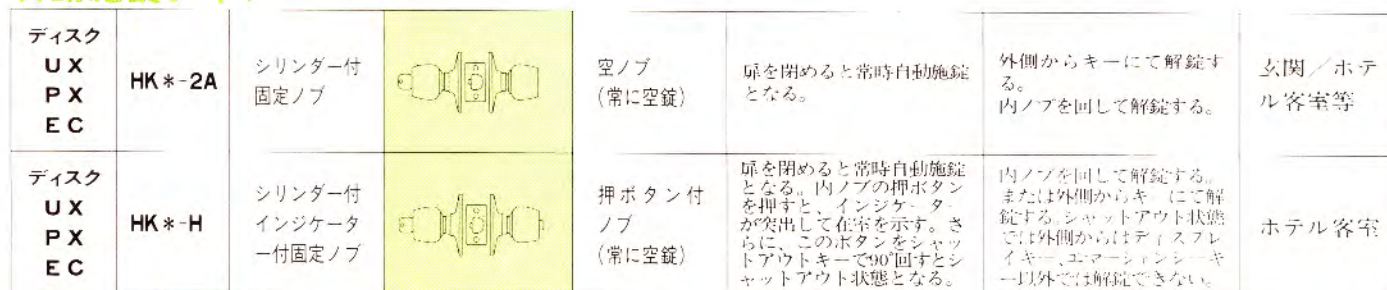 ディスク
UX
PX
EC
HK*-2A
シリンダー付
固定ノブ
空ノブ
(常に空錠)
扉を閉めると常時自動施錠
となる。
外側からキーにて解錠す
る。
内ノブを回して解錠する。
玄関/ホテ
ル客室等
ディスク
UX
PX
EC
HK*-H
シリンダー付
インジケータ
ー付固定ノブ
押ボタン付
ノブ
(常に空錠)
扉を閉めると常時自動施錠
となる。内ノブの押ボタン
を押すと、インジケーター
が突出して在室を示す。さ
らに、このボタンをシャッ
トアウトキーで90°回すとシ
ャットアウト状態となる。
内ノブを回して解錠する。
または外側からキーにて解
錠する。シャットアウト状態
では外側からはディスプレ
イキー、エマージェンシーキ
ー以外では解錠できない。
ホテル客室